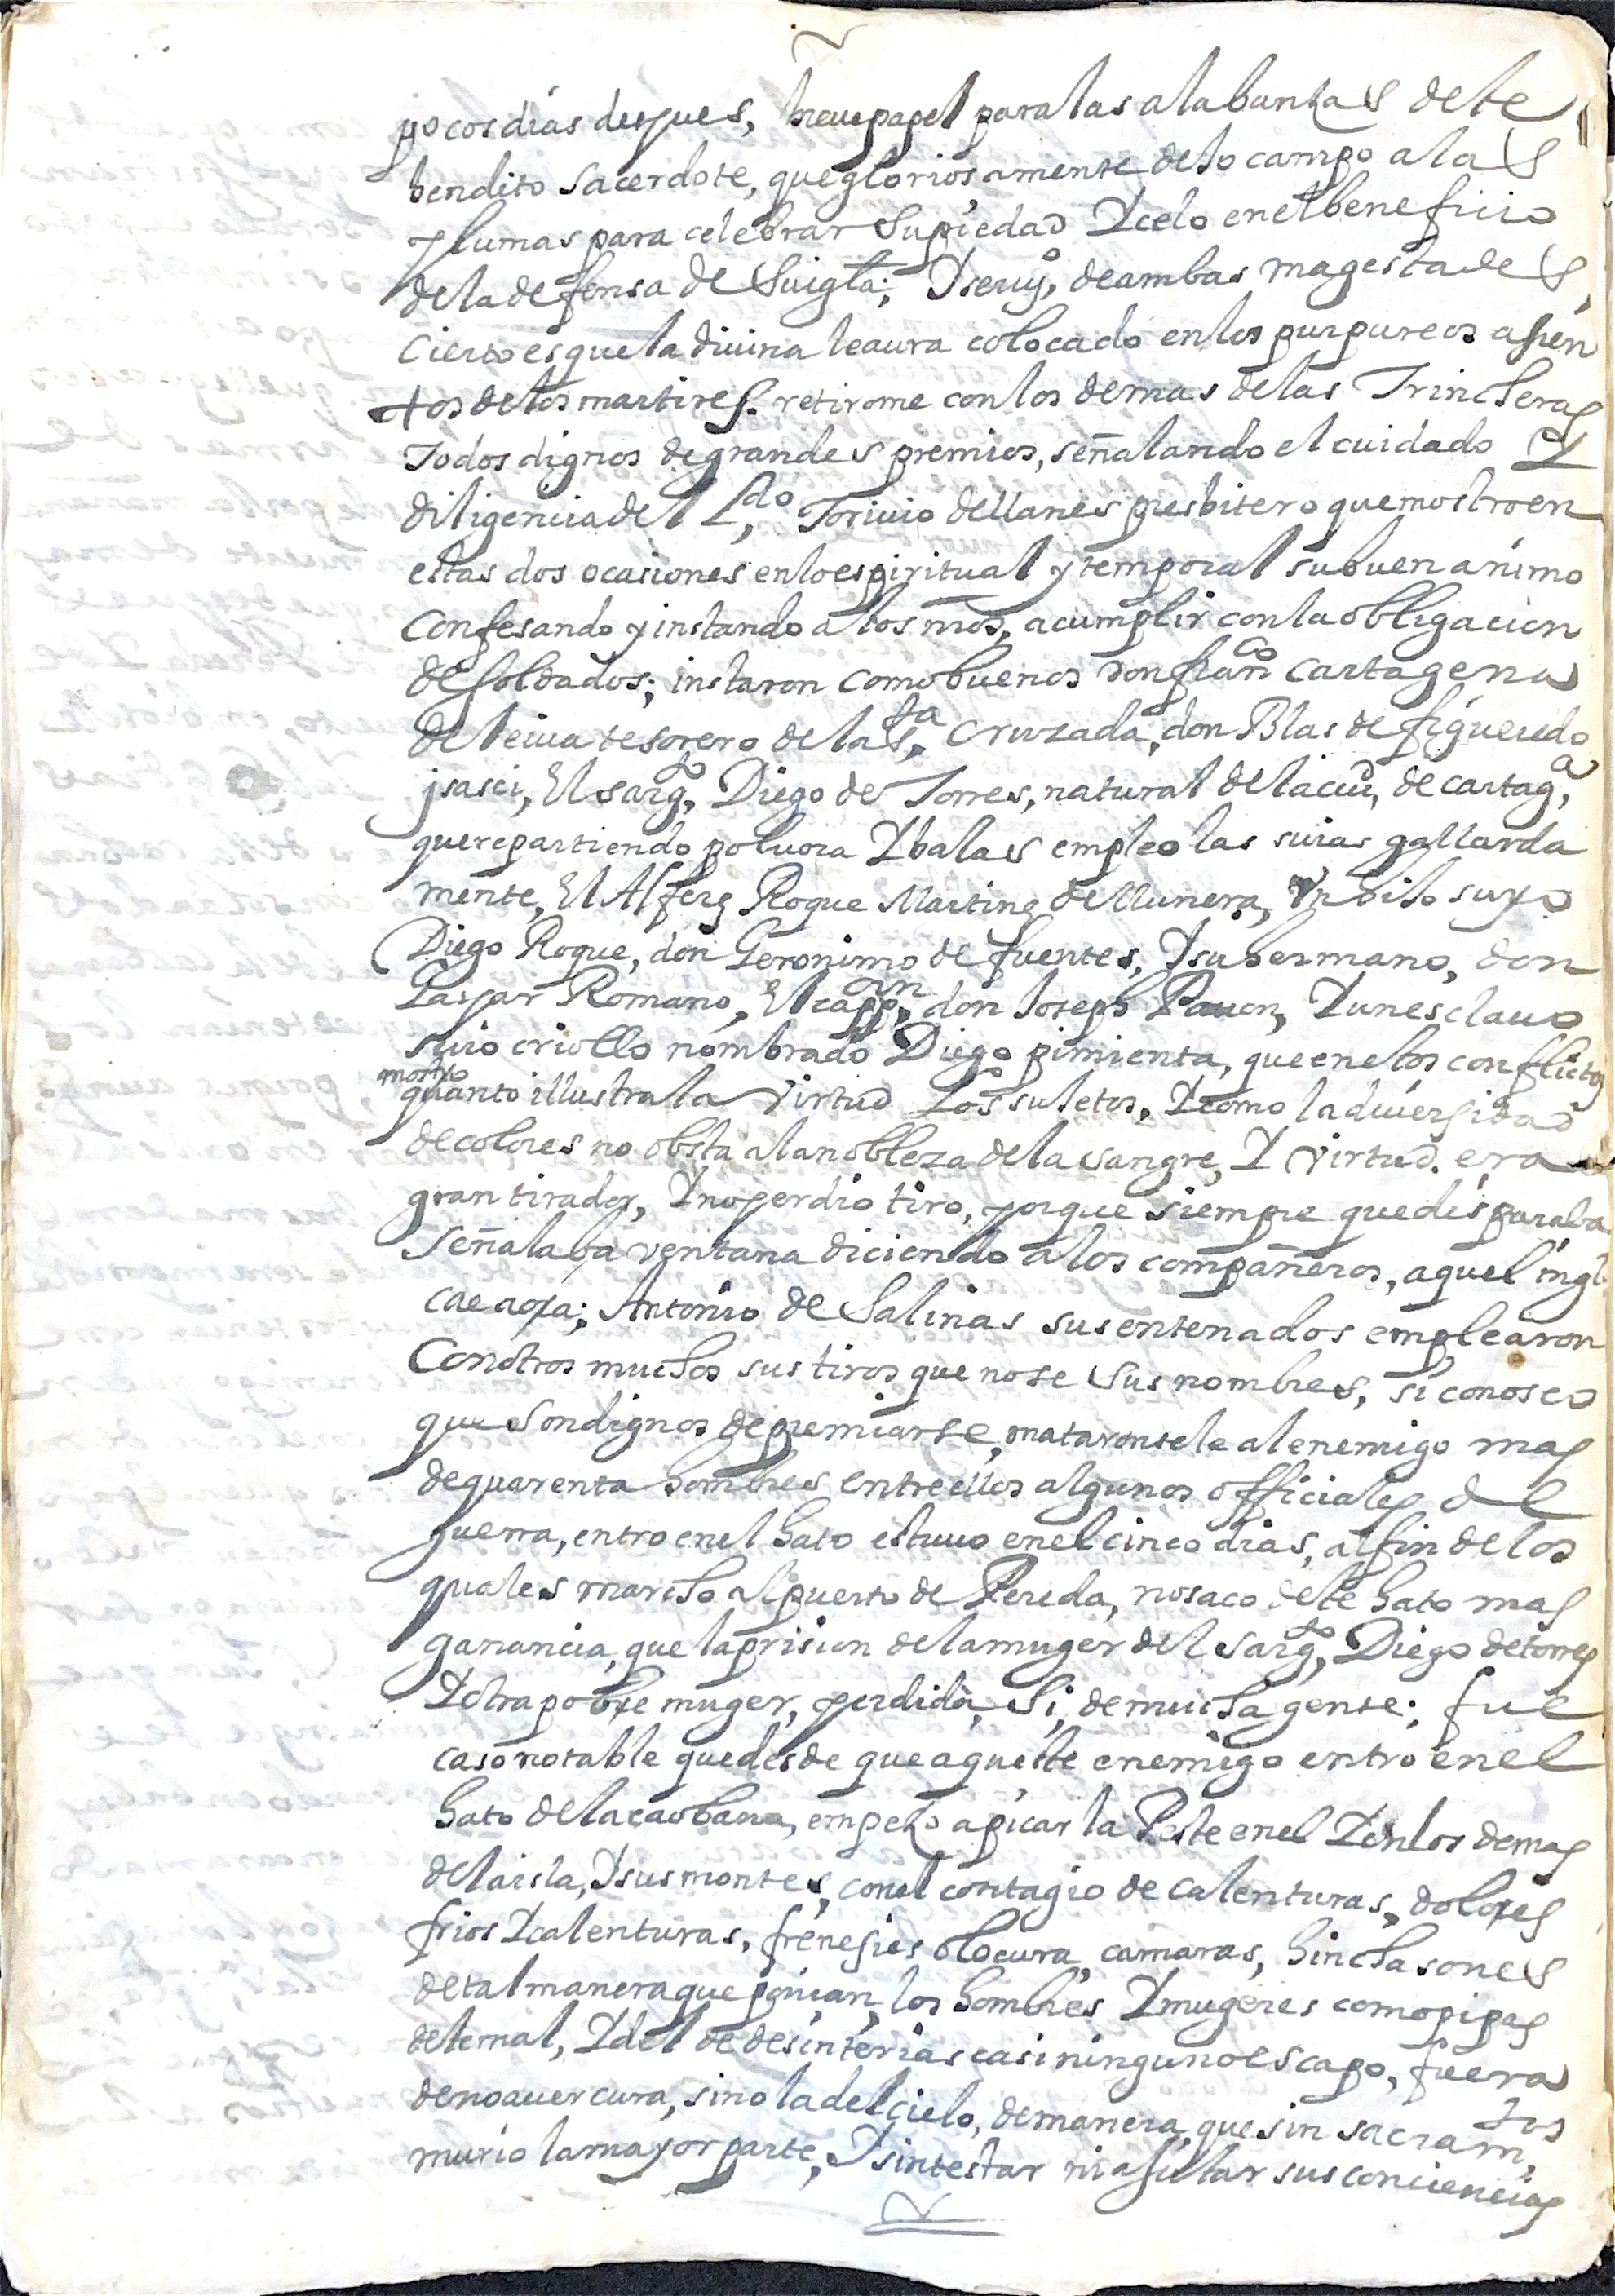 pocos dias despues, breue papel para las alabanzas deste
bendito sacerdote, que gloriosamente desto campo a las
plumas para celebrar su piedad Y celo en el beneficio
de la defensa de su igla; Y seruº, de ambas magestades,
cierto es que la diuina le aura colocado en los purpureos asien
tos de los martires. retirome con los demas de las Trincheras
Todos dignos de grandes premios, señalando el cuidado Y
diligencia del Ldo, Toriuio de llanes presbitero que mostro en
estas dos ocasiones en lo espiritual y temporal su buen animo
Confesando y instando a los nros, a cumplir con la obligacion
de soldados; instaron como buenos don franco cartagena
de leiua tesorero de la sta, cruzada, don Blas de figueredo
jsasi, El sargto, Diego de Torres, natural de la ciud, de cartaga,
que repartiendo poluora Y balas empleo las suias gallarda
mente, El Alferz Roque Martinez de Munera, Vn hijo suyo
Diego Roque, don Geronimo de fuentes, Y su hermano, don
Gaspar Romano, El cappan, don Joseph Pauon, Y un esclauo
suio criollo nombrado Diego pimienta, que en estos conflictos
mostro
quanto illustra la virtud Los suietos, Y como la diuersidad
de colores no obsta a la nobleza de la sangre, Y virtud. era
gran tirador, Y no perdio tiro, porque siempre que disparaba
señalaba ventana diciendo a los compañeros, aquel ingl
cae aora; Antonio de Salinas sus entenados emplearon
Con otros muchos sus tiros que no se sus nombres, si conosco
que son dignos de premiarse, mataronsele al enemigo mas
de quarenta hombres entre ellos algunos officiales de
guerra, entro en el hato estuuo en el cinco dias, al fin de los
quales marcho al puerto de Pereda, no saco deste hato mas
ganancia, que la prision de la muger del sargto, Diego de torres
Y otra pobre muger, perdida, si, de mucha gente; fue
caso notable que desde que aqueste enemigo entro en el
hato de la caobana, empezo a picar la Peste en el Y en los demas
de la isla, Y sus montes, con el contagio de calenturas, dolores
frios Y calenturas, frenesies o locura, camaras, hinchasones
de tal manera que ponian, los hombres Y mugeres como pipas
deste mal, Y del de desinterias casi ninguno escapo, fuera
de no auer cura, sino la del cielo, de manera, que sin sacramtos,
murio la mayor parte, Y sin testar ni ajustar sus conciencias